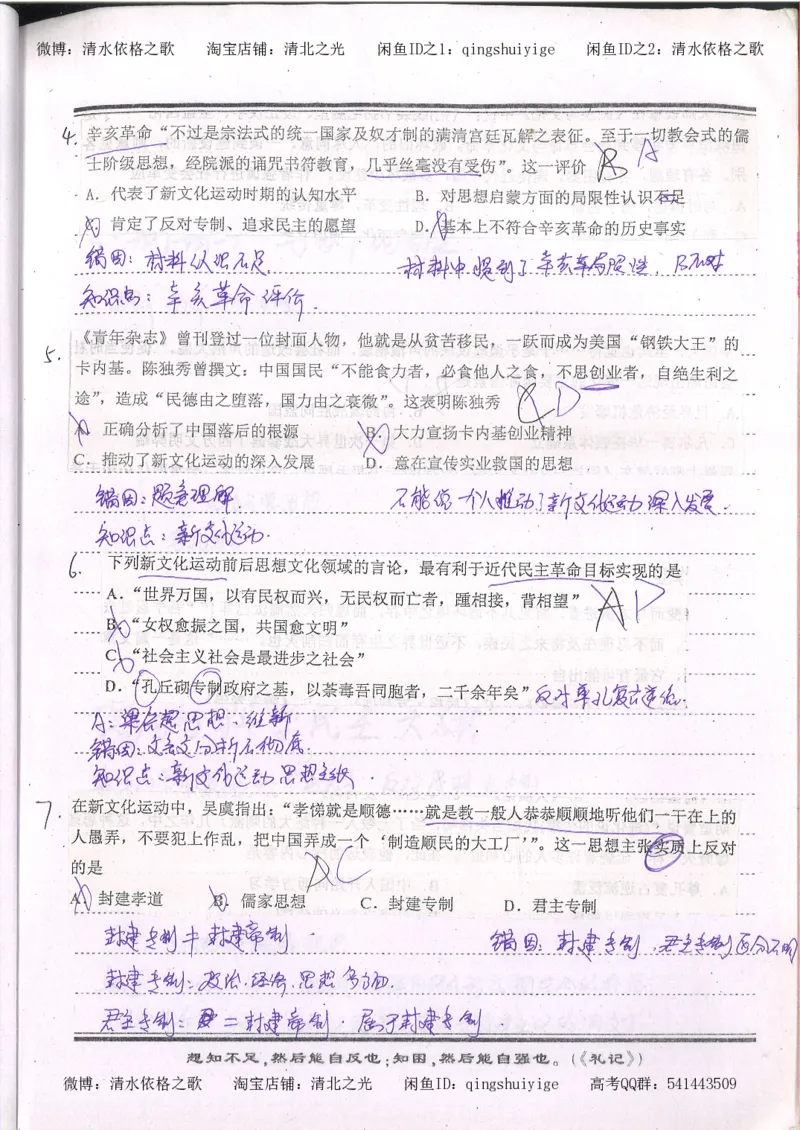 微博：清水依格之歌 淘宝店铺：清北之光 闲鱼ID之1：qingshuiyige 闲鱼ID之2：清水依格之歌
4. 辛亥革命“不过是宗法式的统一国家及奴才制的满清宫廷瓦解之表征。至于一切教会式的儒
士阶级思想，经院派的诵咒书符教育，几乎丝毫没有受伤”。这一评价 B A
A．代表了新文化运动时期的认知水平 B．对思想启蒙方面的局限性认识不足
C．肯定了反对专制、追求民主的愿望 D．基本上不符合辛亥革命的历史事实
错因：材料认识不足 材料中提到了辛亥革局限性，B不对
知识点：辛亥革命评价．
5. 《青年杂志》曾刊登过一位封面人物，他就是从贫苦移民，一跃而成为美国“钢铁大王”的
卡内基。陈独秀曾撰文：中国国民“不能食力者，必食他人之食，不思创业者，自绝生利之
途”，造成“民德由之堕落，国力由之衰微”。这表明陈独秀 C D
A．正确分析了中国落后的根源 B．大力宣扬卡内基创业精神
C．推动了新文化运动的深入发展 D．意在宣传实业救国的思想
错因：题意理解． 不能说一个人推动了新文化运动深入发展．
知识点：新文化运动．
6. 下列新文化运动前后思想文化领域的言论，最有利于近代民主革命目标实现的是
A．“世界万国，以有民权而兴，无民权而亡者，踵相接，背相望” A D
B．“女权愈振之国，共国愈文明”
C．“社会主义社会是最进步之社会”
D．“孔丘砌专制政府之基，以荼毒吾同胞者，二千余年矣” 反对尊孔复古逆流．
A：梁启超思想．维新
错因：文言文分析不彻底．
知识点：新文化运动思想主张．
7. 在新文化运动中，吴虞指出：“孝悌就是顺德……就是教一般人恭恭顺顺地听他们一干在上的
人愚弄，不要犯上作乱，把中国弄成一个‘制造顺民的大工厂’”。这一思想主张实质上反对
的是 D C
A．封建孝道 B．儒家思想 C．封建专制 D．君主专制
封建专制≠封建帝制． 错因：封建专制．君主专制区分不明
封建专制：政治．经济．思想多方面．
君主专制：＝封建帝制．属于封建专制．
想知不足，然后能自反也；知困，然后能自强也。（《礼记》）
微博：清水依格之歌 淘宝店铺：清北之光 闲鱼ID：qingshuiyige 高考QQ群：541443509